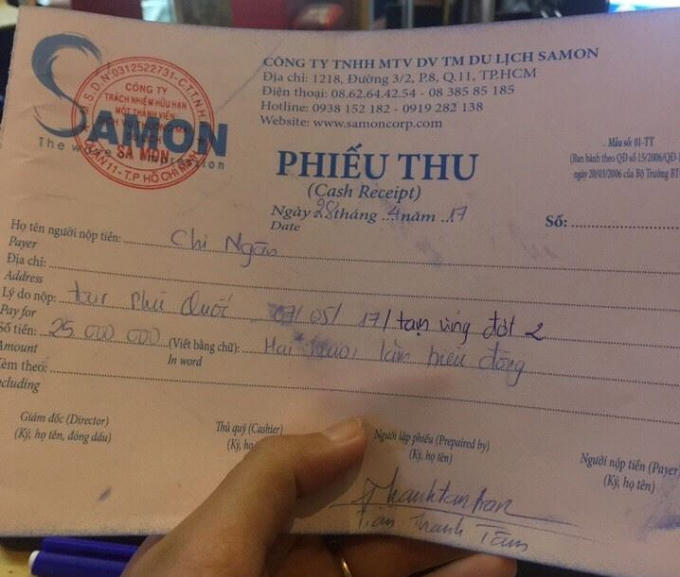 SAMON
CÔNG TY
TRÁCH NHIỆM HỮU HẠN
MỘT THÀNH VIÊN
SA MON
CÔNG TY TNHH MTV DV TM DU LỊCH SAMON
Địa chỉ: 1218, Đường 3/2, P.8, Q.11, TP.HCM
Điện thoại: 08.62.64.42.54 - 08 385 85 185
Hotline: 0938 152 182 - 0919 282 138
Website: www.samoncorp.com
Mẫu số 01-TT
(Ban hành theo QĐ số 15/2006/QĐ-
ngày 20/03/2006 của Bộ Trưởng BT
PHIẾU THU
(Cash Receipt)
Ngày 28 tháng 4 năm 17
Date
Số:
Họ tên người nộp tiền: Chị Ngân
Payer
Địa chỉ:
Address
Lý do nộp: tour Phú Quốc 07/05/17/tạm ứng đợt 2
Pay for
Số tiền: 25 000 000 (Viết bằng chữ): Hai mươi lăm triệu đồng
Amount In word
èm theo:
cluding
Giám đốc (Director)
(Ký, họ tên, đóng dấu)
Thủ quỹ (Cashier)
(Ký, họ
Người lập phiếu (Prepaired by)
(Ký, họ tên)
Người nộp tiền (Payer)
(Ký, họ tên)
Trần Thanh Tâm